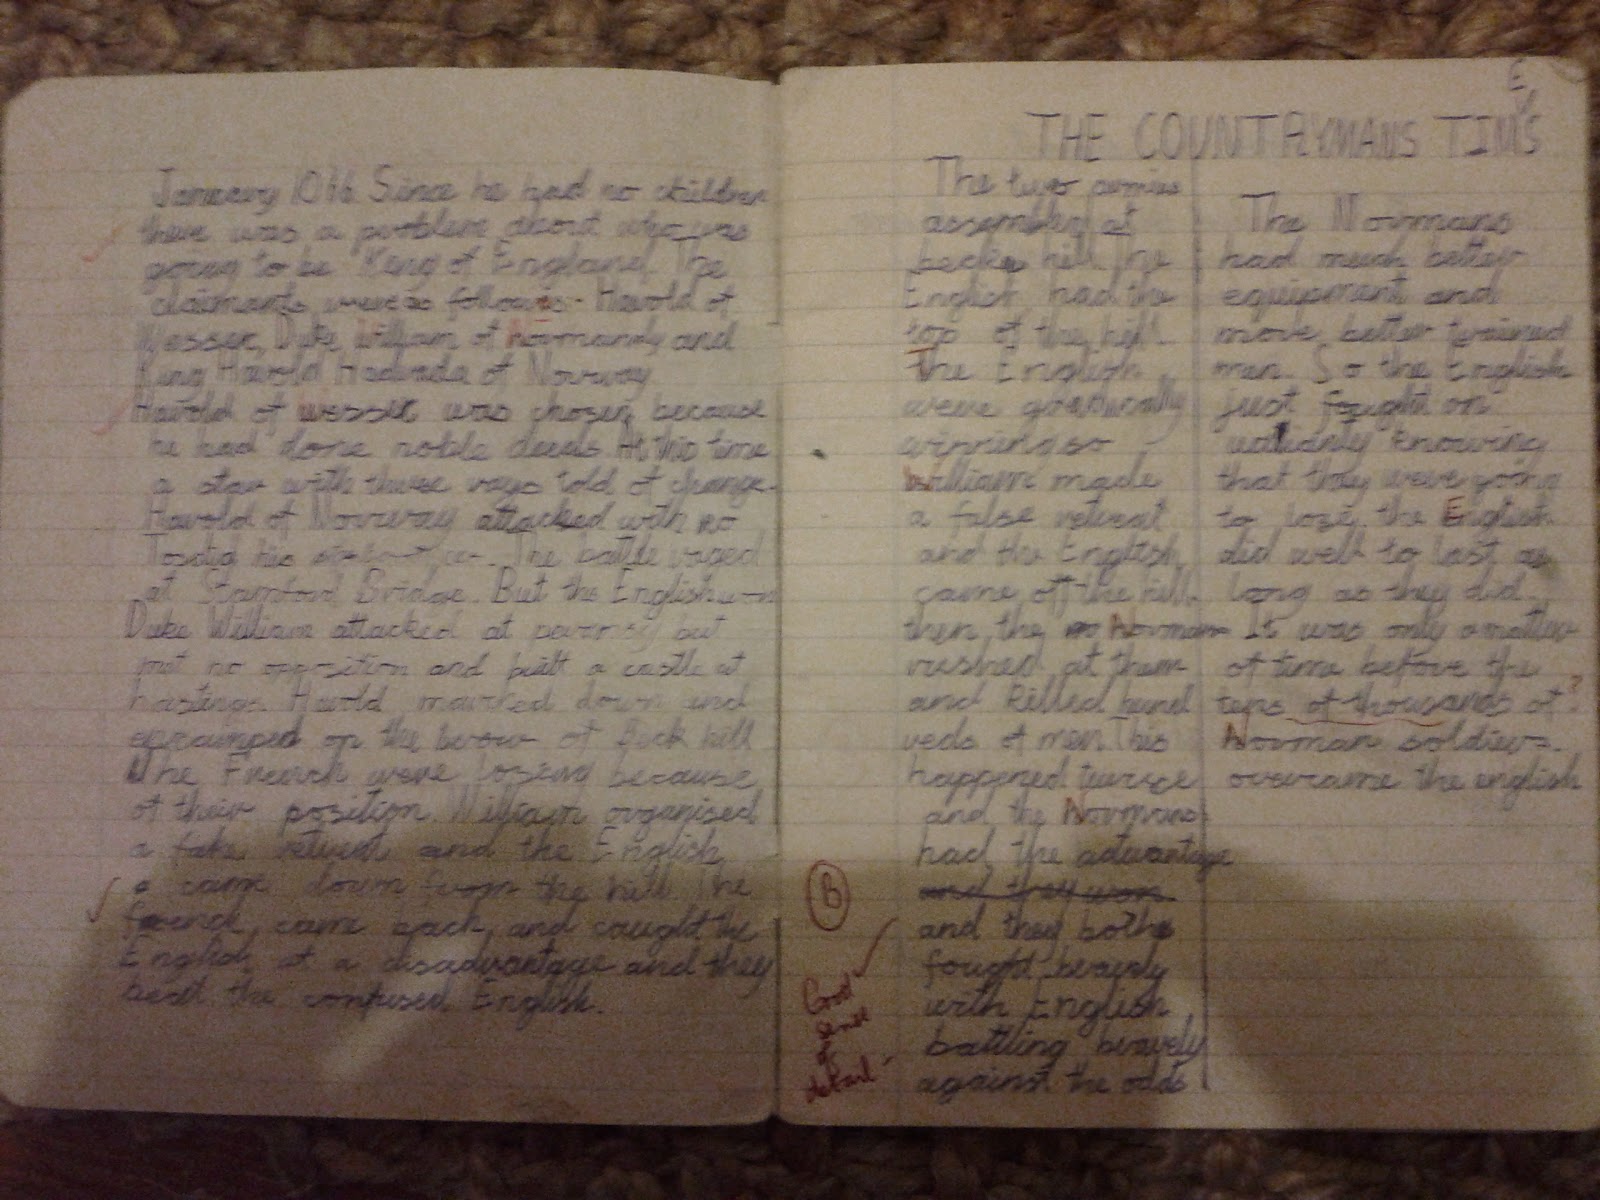 January 1066 Since he had no children
there was a problem about who was
going to be King of England. The
claimants were as follows - Harold of
Wessex, Duke William of Normandy and
King Harold Hadrada of Norway
Harold of wessex was chosen because
he had done noble deeds. At this time
a star with three rays told of change.
Harold of Norway attacked with
Tostig his The battle raged
at Stamford Bridge. But the English won
Duke William attacked at but
met no opposition and built a castle at
hastings Harold marched down and
encamped on the brow of hill
The French were losing because
of their position. William organised
a fake retreat and the English
came down from the hill. The
french came back and caught the
English at a disadvantage and they
beat the confused English.
E
THE COUNTRYMANS TIMS
The two armies
assembled at
hill The
English had the
top of the hill.
The English
were gradually
winning so
William made
a false retreat
and the English
came off the hill.
then the Normans
rushed at them
and killed hund
reds of men. This
happened
and the Normans
had the advantage
and they won
and they bothe
fought bravely
with English
battling bravely
against the odds
The Normans
had much better
equipment and
more better trained
men. So the English
just fought on
valiantly knowing
that they were going
to lose. the English
did well to last as
long as they did.
It was only a matter
of time before the
tens of thousands of ?
Norman soldiers
overcame the english
B
Good
sense
of
detail